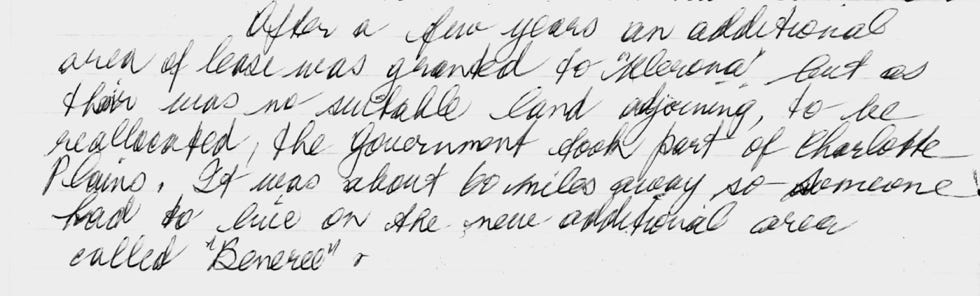 After a few years an additional
area of lease was granted to "Klerona" but as
their was no suitable land adjoining, to be
reallocated, the Government took part of Charlotte
Plains. It was about 60 miles away so someone
had to live on the new additional area
called "Beneree".